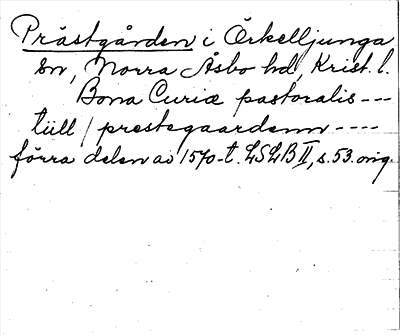 Prästgården i Örkelljunga
sn, Norra Åsbo hd, Krist. l.
Bona Curiæ pastoralis ---
tiill / prestegaardenn ----
förra delen av 1570-t. LSLB II, s. 53. orig.